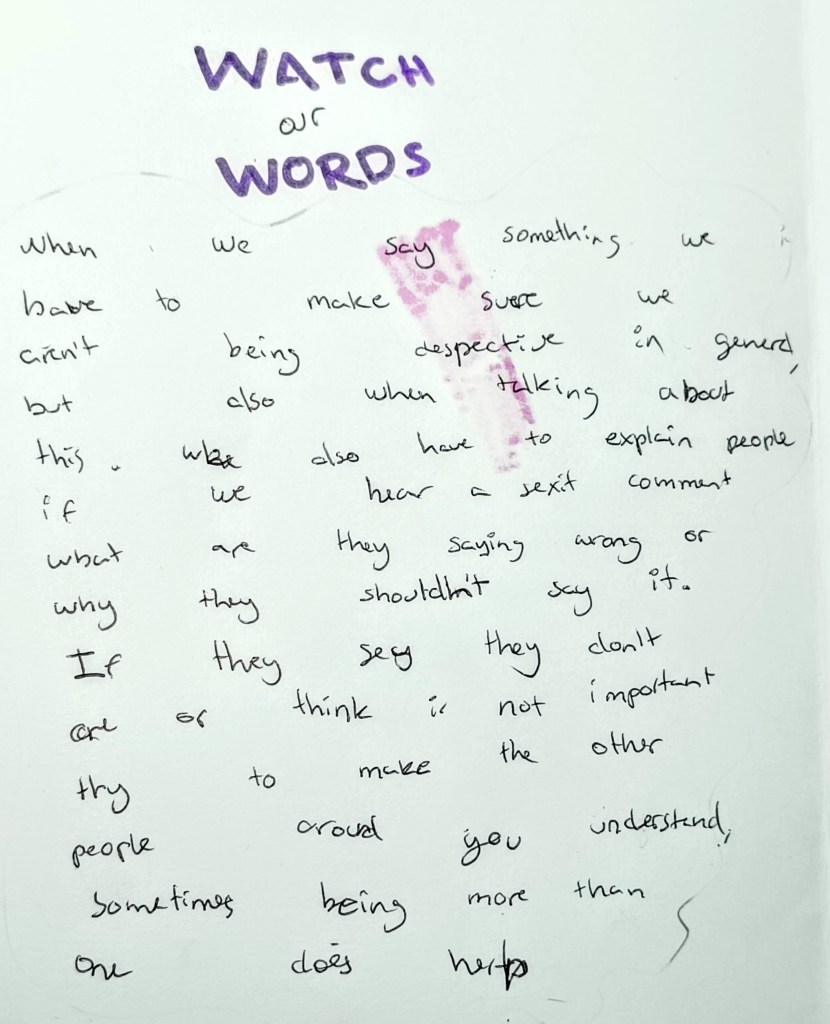 WATCH
our
WORDS
When we say something we
have to make suere we
aren't being despective in general,
but also when talking about
this. we also have to explain people
if we hear a sexit comment
what are they saying wrong or
why they shouldn't say it.
If they sey they don't
care or think is not important
try to make the other
people aroud you understand,
Sometimes being more than
one does help